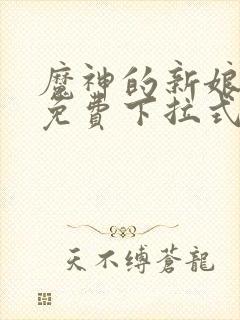 魔神的新娘
免費下拉式
天不缚蒼龍